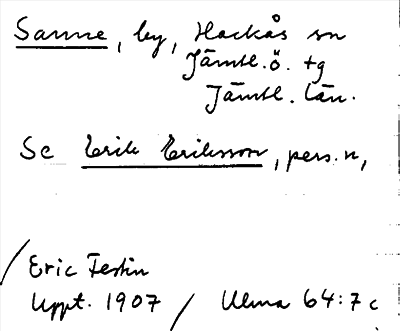 Sanne, by, Hackås sn
Jämtl. ö. tg
Jämtl. län.
Se Erik Eriksson, pers.n,
/ Eric Festin
Uppt. 1907 / Ulma 64:7 c